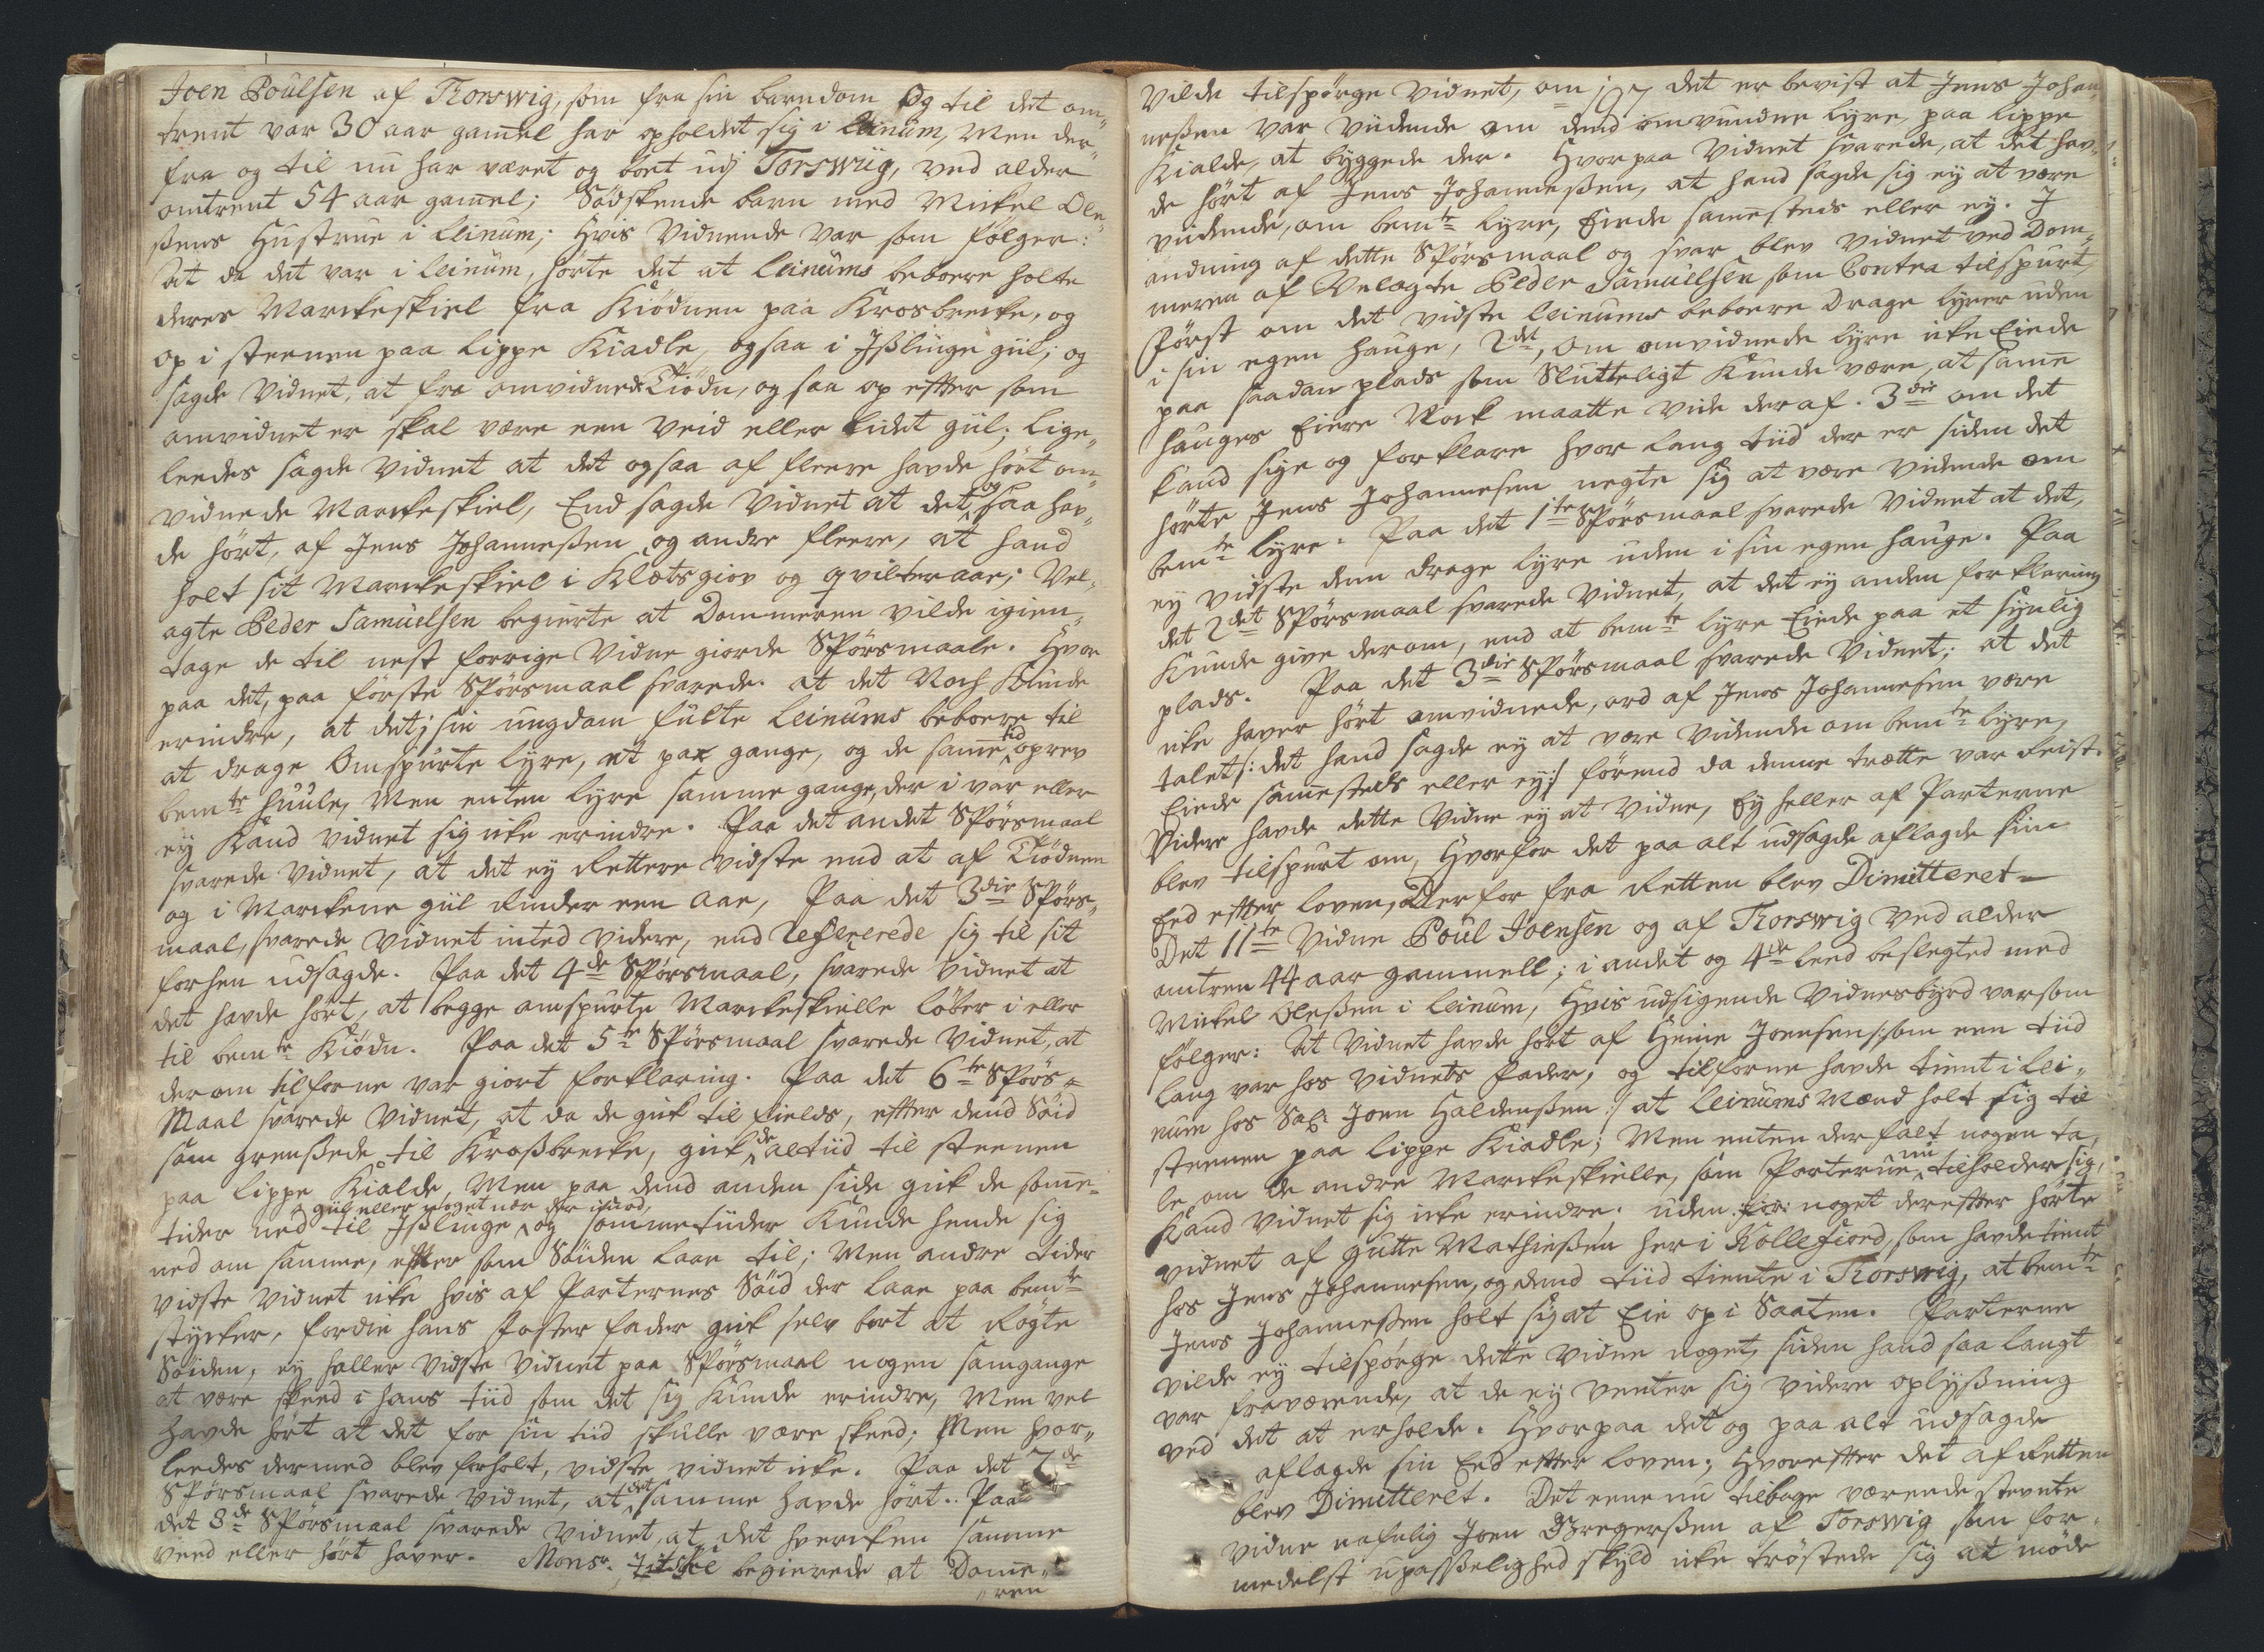 Joen Poulsen af Torswig, som fra sin barndom Og til det om„
trent var 30 aar gam̅el har opholdet sig i Leinum, Men der„
fra og til nu har været og boet udj Torswiig, ved alder
omtrent 54 aar gam̅el; Södskende barn med Mickel Ole„
ßens Hustrue i Leinum; Hvis Vidnende var som følger:
At da det var i Leinüm, hørte det at Leinüms beboere holte
deres Marckeskiel fra Kiödnen paa Krosbrecke, og
op i steenen paa Lippe Kiadle, ogsaa i Ißlinge giil; og
sagde Vidnet, at fra omvidnede Tiödn, og saa op efter som
omvidnet er skal være een Veid eller lidet giil; lige„
leedes sagde Vidnet at det ogsaa af fleere havde hört om„
vidnede Marckeskiel, End sagde Vidnet at det og saa hav„
de hört, af Jens Johannesßen og andre fleere, at hand
holt sit Marckeskiel i Klætsgiov og qvilteraae; Vel„
agte Peder Samüelsen begierte at Dommeren vilde igien„
tage de til nest forrige Vidne giorde Spörsmaale. Hvor
paa det, paa förste Spörsmaal svarede. at det Noch kunde
erindre, at det i sin ungdom fulte Leinums beboere til
at drage Omspurte lyre, et par gange, og de sam̅e tid oprev
bem.te Huule, Men enten lyre samme gange, der i var eller
ey kand vidnet sig icke erindre. Paa det andet Spörsmaal
svarede Vidnet, at det ey Rettere vidste end at af Tiödnen
og i Marckene giil Rinder een Aae, Paa det 3die Spörs„
maal, svarede Vidnet inted videre, end Refererede sig til sit
forhen udsagde. Paa det 4de Spörsmaal, svarede Vidnet at
det havde hört, at begge omspurte Marckeskielle löber i eller
til bem.te Kiödn. Paa det 5te Spörsmaal svarede Vidnet, at
derom tilforne var giort forklaring. Paa det 6te Spörs„
Maal svarede Vidnet, at da de gick til fields, efter dend Söid
som grenßede til Kroßbrecke, gick de altiid til steenen
paa Lippe Kialde, Men paa dend anden side gick de som̅e„
tider ned til Ißlinge giil eller noget nær der imod, og sommetiider kunde hende sig
ned om samme, efter som Söiden laae til; Men andre tider
vidste Vidnet icke hvis af Parternes Söid der laae paa bem.te
stycker, fordie hans foster fader gick selv bort at Rögte
Söiden, ey heller vidste Vidnet paa Spörsmaal nogen samgange
at være skeed i hans tiid som det sig kunde erindre, Men vel
havde hört at det for sin tiid skulle være skeed; Men hvor„
leedes dermed blev forholt, vidste vidnet icke. Paa det 7de
Spörsmaal svarede Vidnet, at det samme havde hört. Paa
det 8de Spörsmaal svarede Vidnet, at det hvercken samme
veed eller hört haver. Mons.r begierede at Dom̅e„
„ren
197
vilde tilspörge Vidnet, om det er bevist at Jens Johan„
neßen var viidende om dend omvundne lyre, paa Lippe
Kialde, at byggede der. Hvorpaa Vidnet svarede, at det hav„
de hört af Jens Johanneßen, at hand sagde sig ey at være
viidende, om bem.te lyre, Eiede sam̅esteds eller ey. J
andning af dette Spörsmaal og svar blev Vidnet ved Dom„
meren af Velagte Peder Samuelsen som Contra tilspurt,
Först om det vidste Leinums beboere Drage lyrer uden
i sin egen hauge, 2det, om omvidnede lyre icke Eiede
paa saadan plads som Slutteligt kunde være, at sam̅e
hauges Eiere Nock maatte vide deraf. 3die om det
kand sige og forklare hvor lang tiid der er siden det
hörte Jens Johannesen negte sig at være vidende om
bem.te lyre. Paa det 1te Spörsmaal svarede Vidnet at det,
ey vidste dem drage lyre uden i sin egen hauge. Paa
det 2det Spörsmaal svarede Vidnet, at det ey anden forklaring
kunde give derom, end at bem.te lyre Eiede paa et synlig
plads. Paa det 3die Spörsmaal svarede Vidnet; at det
icke haver hört omvidnede, ord af Jens Johannesen være
talet /: det hand sagde ey at være vidende om bem.te lyre,
Eiede sam̅esteds eller ey :/ förend da denne trætte var Reist.
Videre havde dette Vidne ey at Vidne, Ey heller af Parterne
blev tilspurt om, Hvorfor det paa alt udsagde aflagde sin
Eed efter loven, Derfor fra Retten blev Dimitteret —
Det 11te Vidne Poül Joensen og af Torswig ved alder
omtren 44 aar gammell; i andet og 4de leed beslegted med
Mickel Oleßen i Leinum, Hvis udsigende Vidnesbyrd var som
fölger: At Vidnet havde hört af Heine Joensen /: som een tiid
lang var hos Vidnets fader, og tilforne havde tient i Lei„
num hos Sal: Joen Haldenßen :/ at Leinums Mænd holt sig til
steenen paa Lippe Kiadle; Men enten der falt nogen ta„
le om de andre Marckeskielle, som Parterne nu tilholder sig,
kand Vidnet sig icke erindre. uden noget derefter hörte
vidnet af Gutte Mathießen her i Kollefiord, som havde tient
hos Jens Johannesen, og dend tiid tiente i Torswig, at bem.te
Jens Johanneßen holt sig at Eie op i Saaten. Parterne
vilde ey tilspörge dette Vidne noget, siden hand saa langt
var fraværende, at de ey venter sig videre oplyßning
ved det at erholde. Hvorpaa det og paa alt udsagde
aflagde sin Eed efter loven; Hvorefter det af Retten
blev Dimitteret. Det eene nu tilbage værende stevnte
Vidne nafnlig Joen Gregerßen af Torswig som for„
medelst upasselighed skyld icke tröstede sig at möde